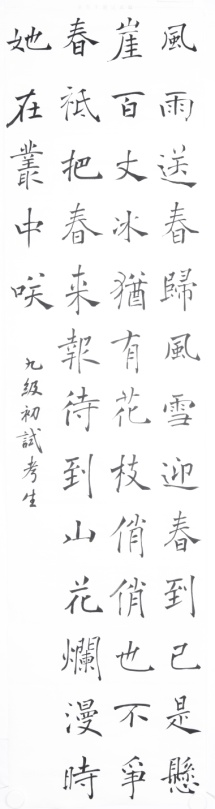 風雨送春歸風雪迎春到已是懸
崖百丈冰猶有花枝俏俏也不爭
春祗把春来報待到山花爛漫時
她在叢中咲
九級初試考生